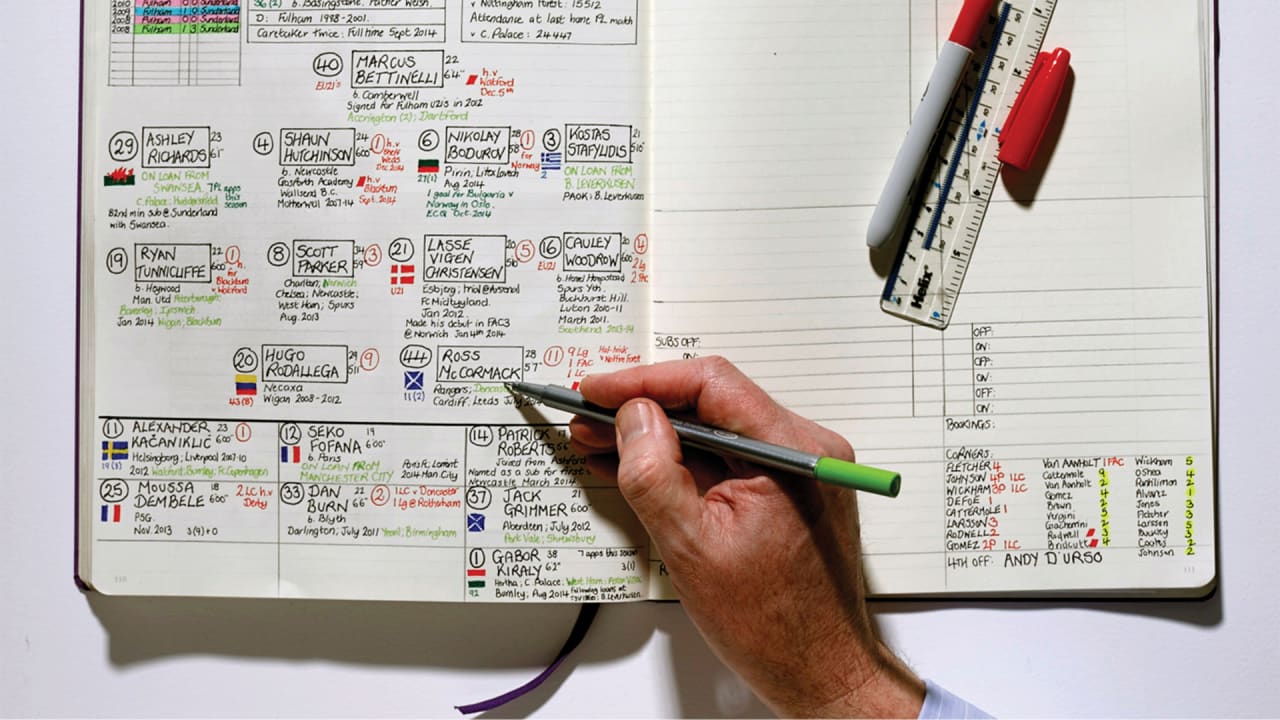 2010 Fulham Sunderland
2009 Fulham 1 0 Sunderland
2008 Fulham 0 0 Sunderland
2008 Fulham 1 3 Sunderland
b. Basingstoke. Father Welsh.
D: Fulham 1998-2001.
Caretaker twice; Full time Sept 2014
v Nottingham Forest: 15512
Attendance at last home PL match
v C. Palace: 24447
40 MARCUS BETTINELLI 22 6'4"
EU21's
h.v Watford Dec. 5th
b. Camberwell
Signed for Fulham U21s in 2012
Accrington (2); Dartford
29 ASHLEY RICHARDS 23 6'1"
ON LOAN FROM
SWANSEA. 7PL apps this season
C. Palace; Huddersfield
82nd min sub @ Sunderland
with Swansea.
4 SHAUN HUTCHINSON 24 6'00"
1 h.v Sheff Weds Dec 2014
b. Newcastle
Gosforth Academy
Wallsend B.C.
Motherwell 2007-14
h.v Blackburn Sept. 2014
6 NIKOLAY BODUROV 28
1 for Norway
27(1)
Pirin; Litex Lovech
Aug 2014
1 goal for Bulgaria v
Norway in Oslo.
ECQ Oct 2014
3 KOSTAS STAFYLIDIS 21 5'10"
2
ON LOAN FROM
B. LEVERKUSEN
PAOK; B. Leverkusen
19 RYAN TUNNICLIFFE 22 6'00"
1 h. for Blackburn v Watford
b. Heywood
Man. Utd Peterborough;
Barnsley; Ipswich.
Jan 2014 Wigan; Blackburn
8 SCOTT PARKER 34 5'9" 3
Charlton; Norwich
Chelsea; Newcastle;
West Ham; Spurs
Aug. 2013
21 LASSE VIGEN CHRISTENSEN 20 5'10" 5
U21
Esbjerg; trial @ Arsenal
FC Midtjylland.
Jan 2012.
Made his debut in FAC3
@ Norwich Jan 4th 2014
16 CAULEY WOODROW 20 6'00" 4
EU21
2 Lg
2 FAC
b. Hemel Hempstead
Spurs Yth.
Buckhurst Hill.
Luton 2010-11
March 2011.
Southend 2013-14
20 HUGO RODALLEGA 29 5'11" 9
43(8)
Necaxa
Wigan 2008-2012
44 ROSS McCORMACK 28 5'7"
11 9 Lg 1 FAC 1 LC
Hat-trick v Nottm Forest
11(2)
Rangers; Doncas
Cardiff; Leeds July 2014
11 ALEXANDER KAČANIKLIĆ 23 6'00" 1
Helsingborg; Liverpool 2007-10
19(3) 2012 Watford; Burnley; FC Copenhagen
12 SEKO FOFANA 19 6'00"
b. Paris
ON LOAN FROM
MANCHESTER CITY
Paris Fc; Lorient
2014 Man. City
14 PATRICK ROBERTS 5'6"
Joined from Ashford
Named as a sub for first
Newcastle March 2014
25 MOUSSA DEMBELE 18 6'00"
2 LC h.v Derby
PSG.
Nov. 2013 3(9)+0
33 DAN BURN 22 6'6" 2
1LC v Doncaster
1 Lg @ Rotherham
b. Blyth
Darlington; July 2011 Yeovil; Birmingham
37 JACK GRIMMER 21 6'00"
Aberdeen; July 2012
Port Vale; Shrewsbury
1 GABOR KIRALY 38 6'2"
7 apps this season
3(1)
92
Hertha; C. Palace; West Ham; Aston Villa;
Burnley; Aug 2014 following loans at
B. Leverkusen
110
SUBS OFF:
ON:
OFF:
ON:
OFF:
ON:
OFF:
ON:
BOOKINGS:
CORNERS:
FLETCHER 4
JOHNSON 4P 1LC
WICKHAM 3P 1LC
DEFOE 1
CATTERMOLE 1
LARSSON 3
RODWELL 2
GOMEZ 2P 1LC
Van AANHOLT 1FAC
Cattermole 9
Van Aanholt 2
Gomez 4
Brown 2
Vergini 3
Giaccherini 2
Rodwell 3
Bridcutt 4
Wickham 5
O'Shea 4
Pantilimon 2
Alvarez 1
Jones 3
Fletcher 3
Larsson 5
Buckley 3
Coates 2
Johnson 2
4TH OFF: ANDY D'URSO
111
Helix